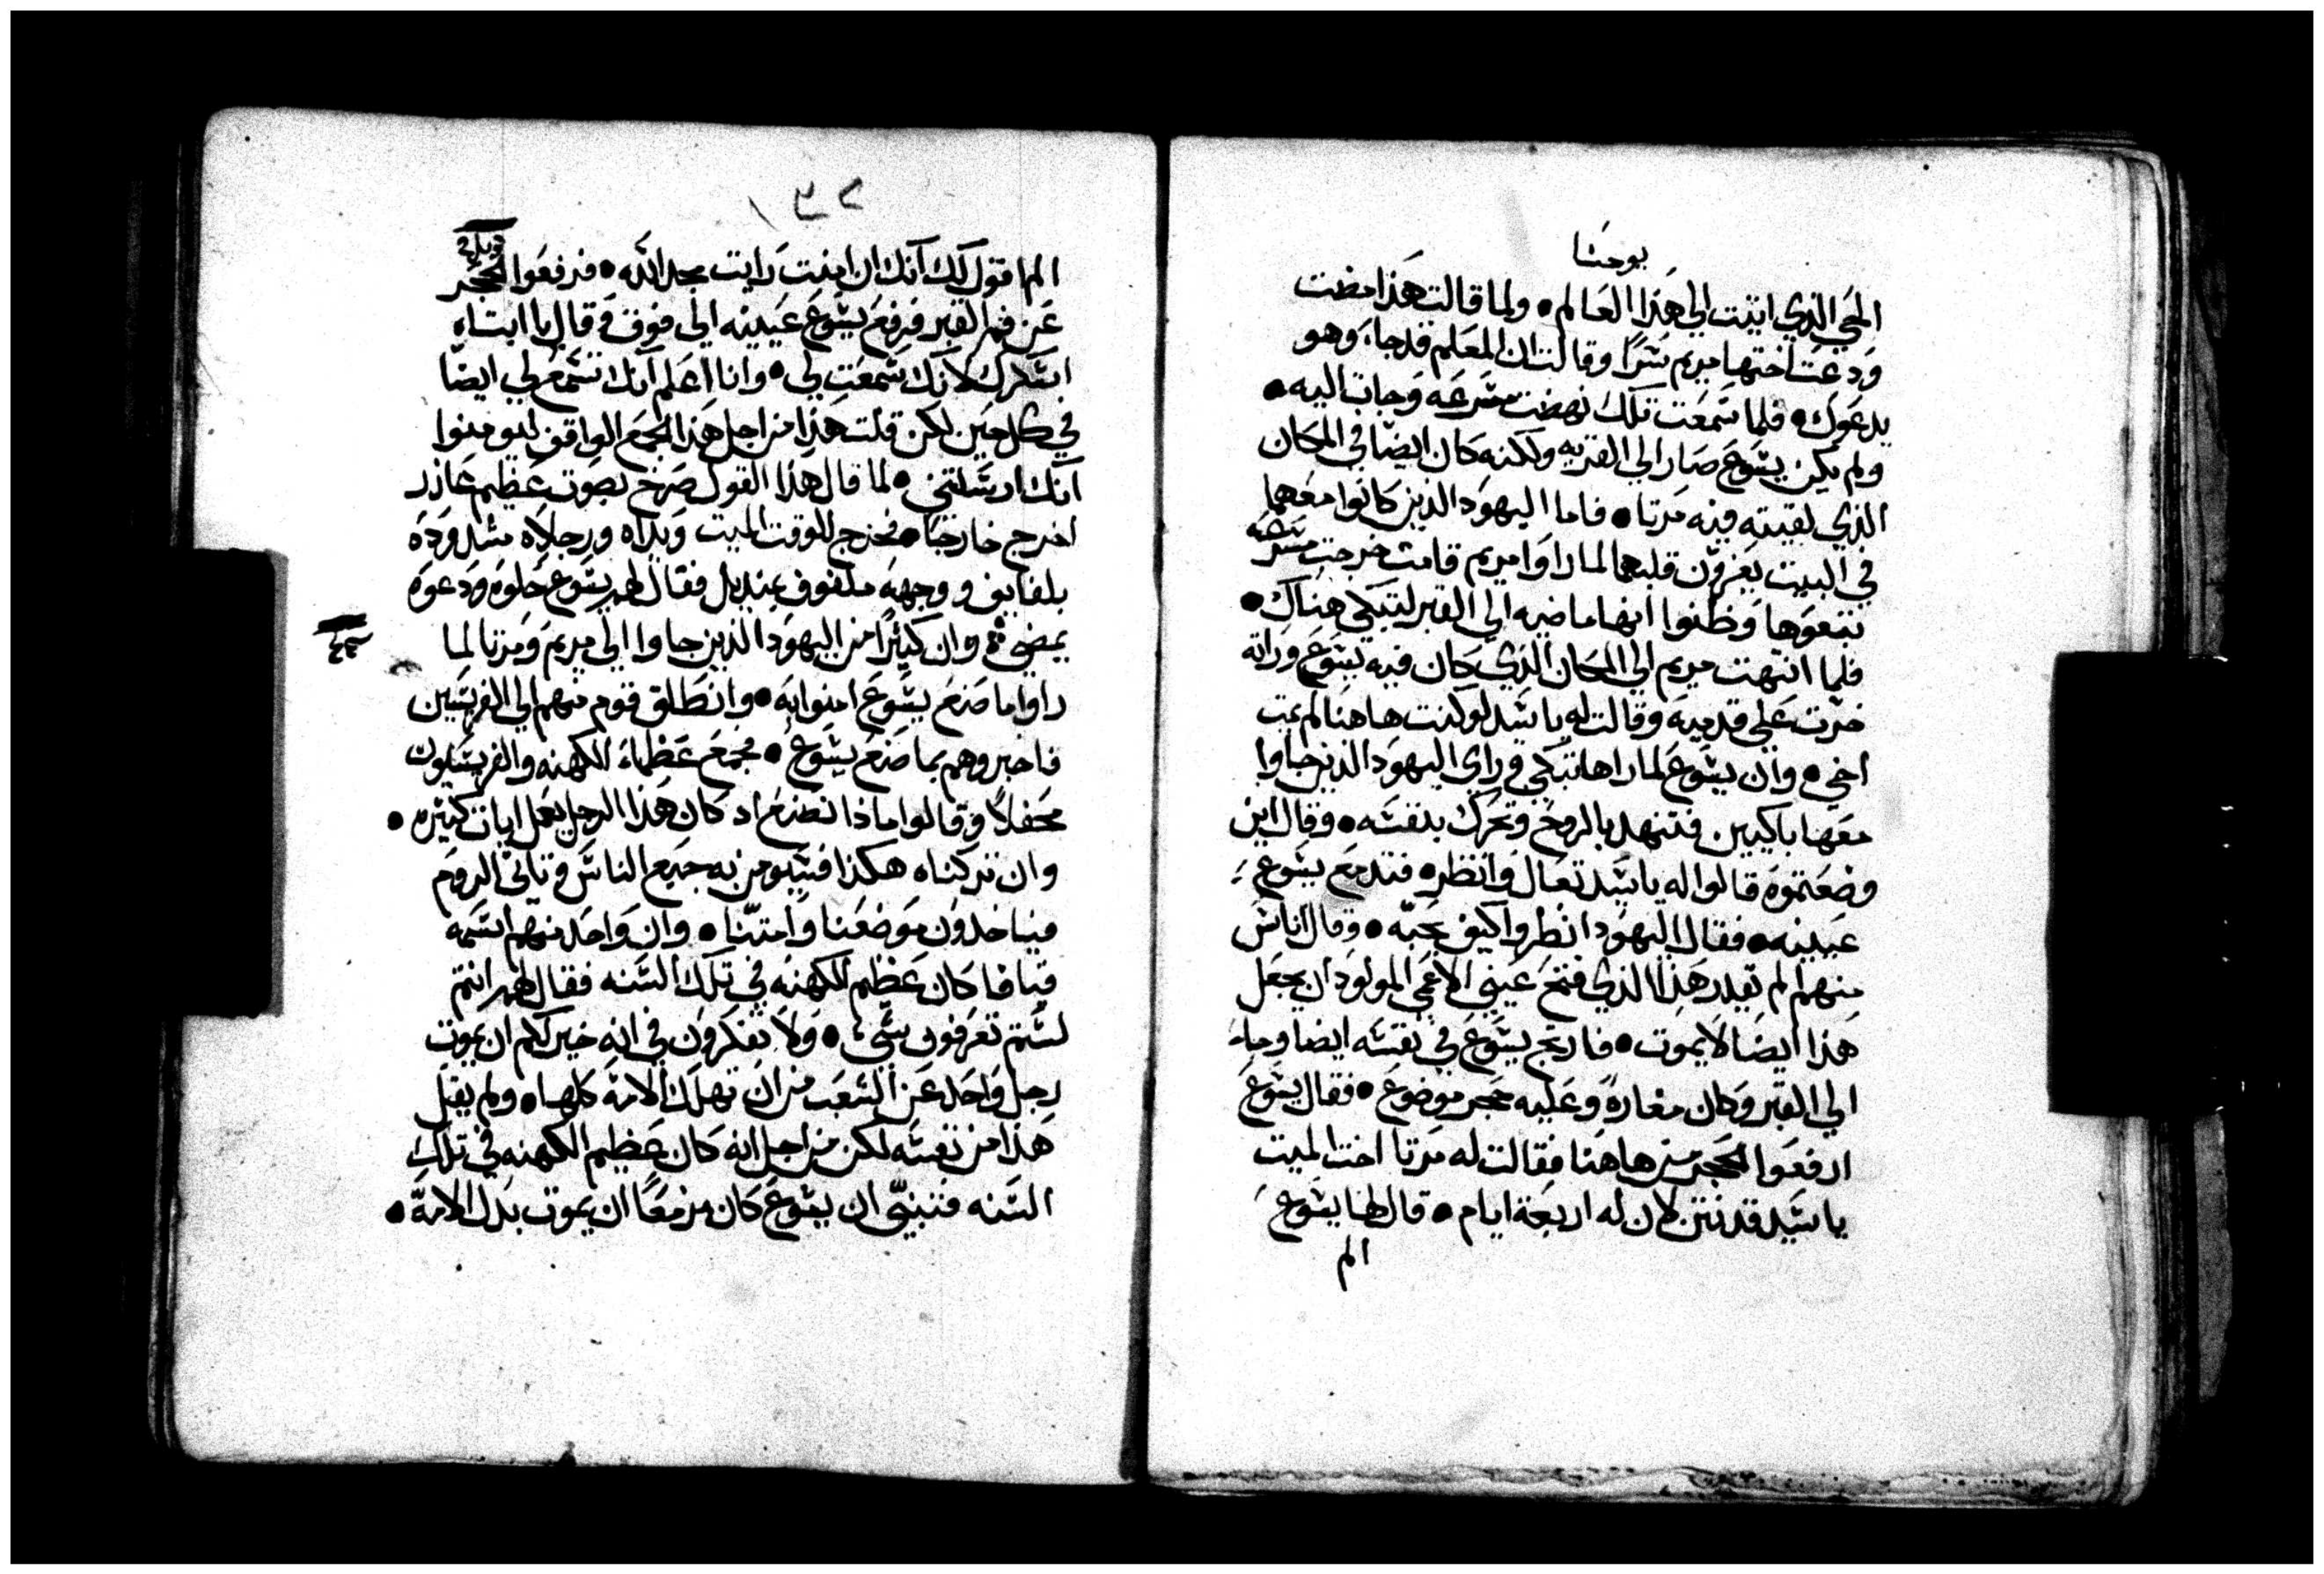 يوحنا
الحي الذي اتيت الي هذا العالم • ولما قالت هذا مضت
ودعت اختها مريم سرًا وقالت ان المعلم قد جاء وهو
يدعوك • فلما سمعت تلك نهضت مسرعه وجات اليه •
ولم يكن يسوع صار الي القريه ولكنه كان ايضا في المكان
الذي لقيته فيه مرتا • فاما اليهود الذين كانوا معهما
في البيت يعزون قلبهما لما راوا مريم قامت خرجت مسرعه
تبعوها وظنوا انها ماضيه الي القبر لتبكي هناك •
فلما انتهت مريم الي المكان الذي كان فيه يسوع وراته
خرت علي قدميه وقالت له يا سيد لو كنت هاهنا لم يمت
اخي • وان يسوع لما راها تبكي وراي اليهود الذين جاوا
معها باكيين فتنهد بالروح وتحرك بنفسه • وقال اين
وضعتموه قالوا له يا سيد تعال وانظره فتدمع يسوع
عينيه • فقال اليهود انظروا كيف يحبه • وقال اناس
منهم الم تقدر هذا الذي فتح عيني الاعمي المولود ان يجعل
هذا ايضا لا يموت • فارتج يسوع في نفسه ايضا وجاء
الي القبر وكان مغارة وعليه حجر موضوع • فقال يسوع
ارفعوا الحجر من هاهنا فقالت له مرتا اخت الميت
يا سيد قد نتن لان له اربعة ايام • قال لها يسوع
الم
الم اقول لك انك ان امنت رايت مجد الله • فرفعوا الحجر
عن فم القبر فرفع يسوع عينيه الي فوق وقال يا ابتاه
اشكرك لانك سمعت لي • وانا اعلم انك تسمع لي ايضًا
في كل حين لكن قلت هذا من اجل هذا الجمع الواقف ليومنوا
انك ارسلتني • لما قال هذا القول صرخ بصوت عظيم عازر
اخرج خارجًا • فخرج للوقت الميت ويداه ورجلاه مشدوده
بلفايف ووجهه ملفوف بمنديل فقال لهم يسوع حلوه ودعوه
يمضي وان كثيرًا من اليهود الذين جاوا الي مريم ومرتا لما
راوا ما صنع يسوع امنوا به • وانطلق قوم منهم الي الفريسين
فاخبروهم بما صنع يسوع • فجمع عظماء الكهنه والفريسيون
محفلًا وقالوا ماذا نصنع اد كان هذا الرجل يعمل ايات كثيره •
وان تركناه هكذا فسيومن به جميع الناس وتاتي الروم
فياخذون موضعنا وامتنا • وان واحد منهم اسمه
قيافا كان عظيم الكهنه في تلك السنه فقال لهم انتم
لستم تعرفون شي • ولا تفكرون في انه خير لكم ان يموت
رجل واحد عن الشعب من ان تهلك الامة كلها • ولم يقل
هذا من نفسه لكن من اجل انه كان عظيم الكهنه في تلك
السنه فتنبي ان يسوع كان مزمعًا ان يموت بدل الامة •